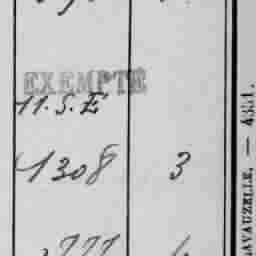 EXEMPTÉ
11.S.E
1308 3
LAVAUZELLE. — 4351.